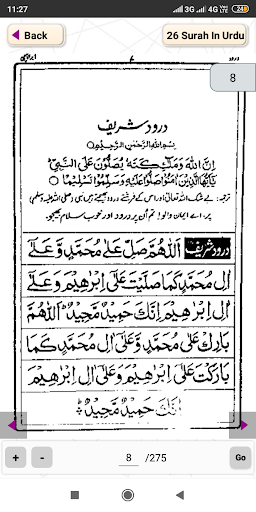 11:27
4G 4G 24
Back
26 Surah In Urdu
درود
8
درود شریف
بِسْمِ اللهِ الرَّحْمٰنِ الرَّحِيْمِ
اِنَّ اللهَ وَمَلٰٓئِكَتَهٗ يُصَلُّوْنَ عَلَى النَّبِيِّ
يٰٓاَيُّهَا الَّذِيْنَ اٰمَنُوْا صَلُّوْا عَلَيْهِ وَسَلِّمُوْا تَسْلِيْمًا
ترجمہ: بے شک اللہ تعالیٰ اور اس کے فرشتے درود بھیجتے ہیں نبی (صلی اللہ علیہ وسلم)
پر، اے ایمان والو! تم ان پر درود اور خوب سلام بھیجو۔
درود شریف اَللّٰهُمَّ صَلِّ عَلٰى مُحَمَّدٍ وَّعَلٰٓى
اٰلِ مُحَمَّدٍ كَمَا صَلَّيْتَ عَلٰٓى اِبْرٰهِيْمَ وَعَلٰٓى
اٰلِ اِبْرٰهِيْمَ اِنَّكَ حَمِيْدٌ مَّجِيْدٌ اَللّٰهُمَّ
بَارِكْ عَلٰى مُحَمَّدٍ وَّعَلٰٓى اٰلِ مُحَمَّدٍ كَمَا
بَارَكْتَ عَلٰٓى اِبْرٰهِيْمَ وَعَلٰٓى اٰلِ اِبْرٰهِيْمَ
اِنَّكَ حَمِيْدٌ مَّجِيْدٌ
+ - 8 /275 Go